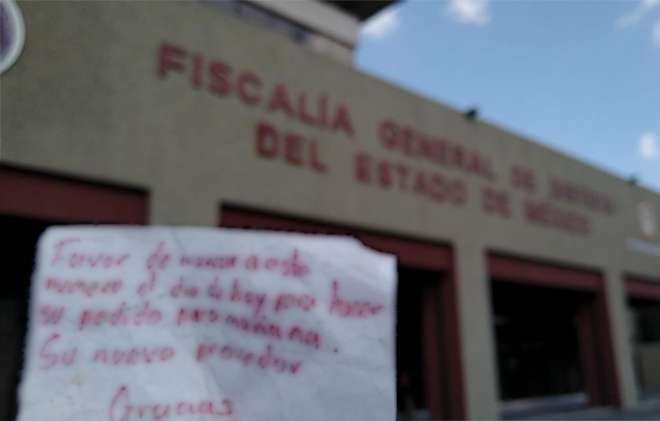 FISCALÍA GENERAL DE JUSTICIA
DEL ESTADO DE MÉXICO
Favor de marcar a este
numero el dia de hoy para hacer
su pedido para mañana.
Su nuevo proveedor
Gracias